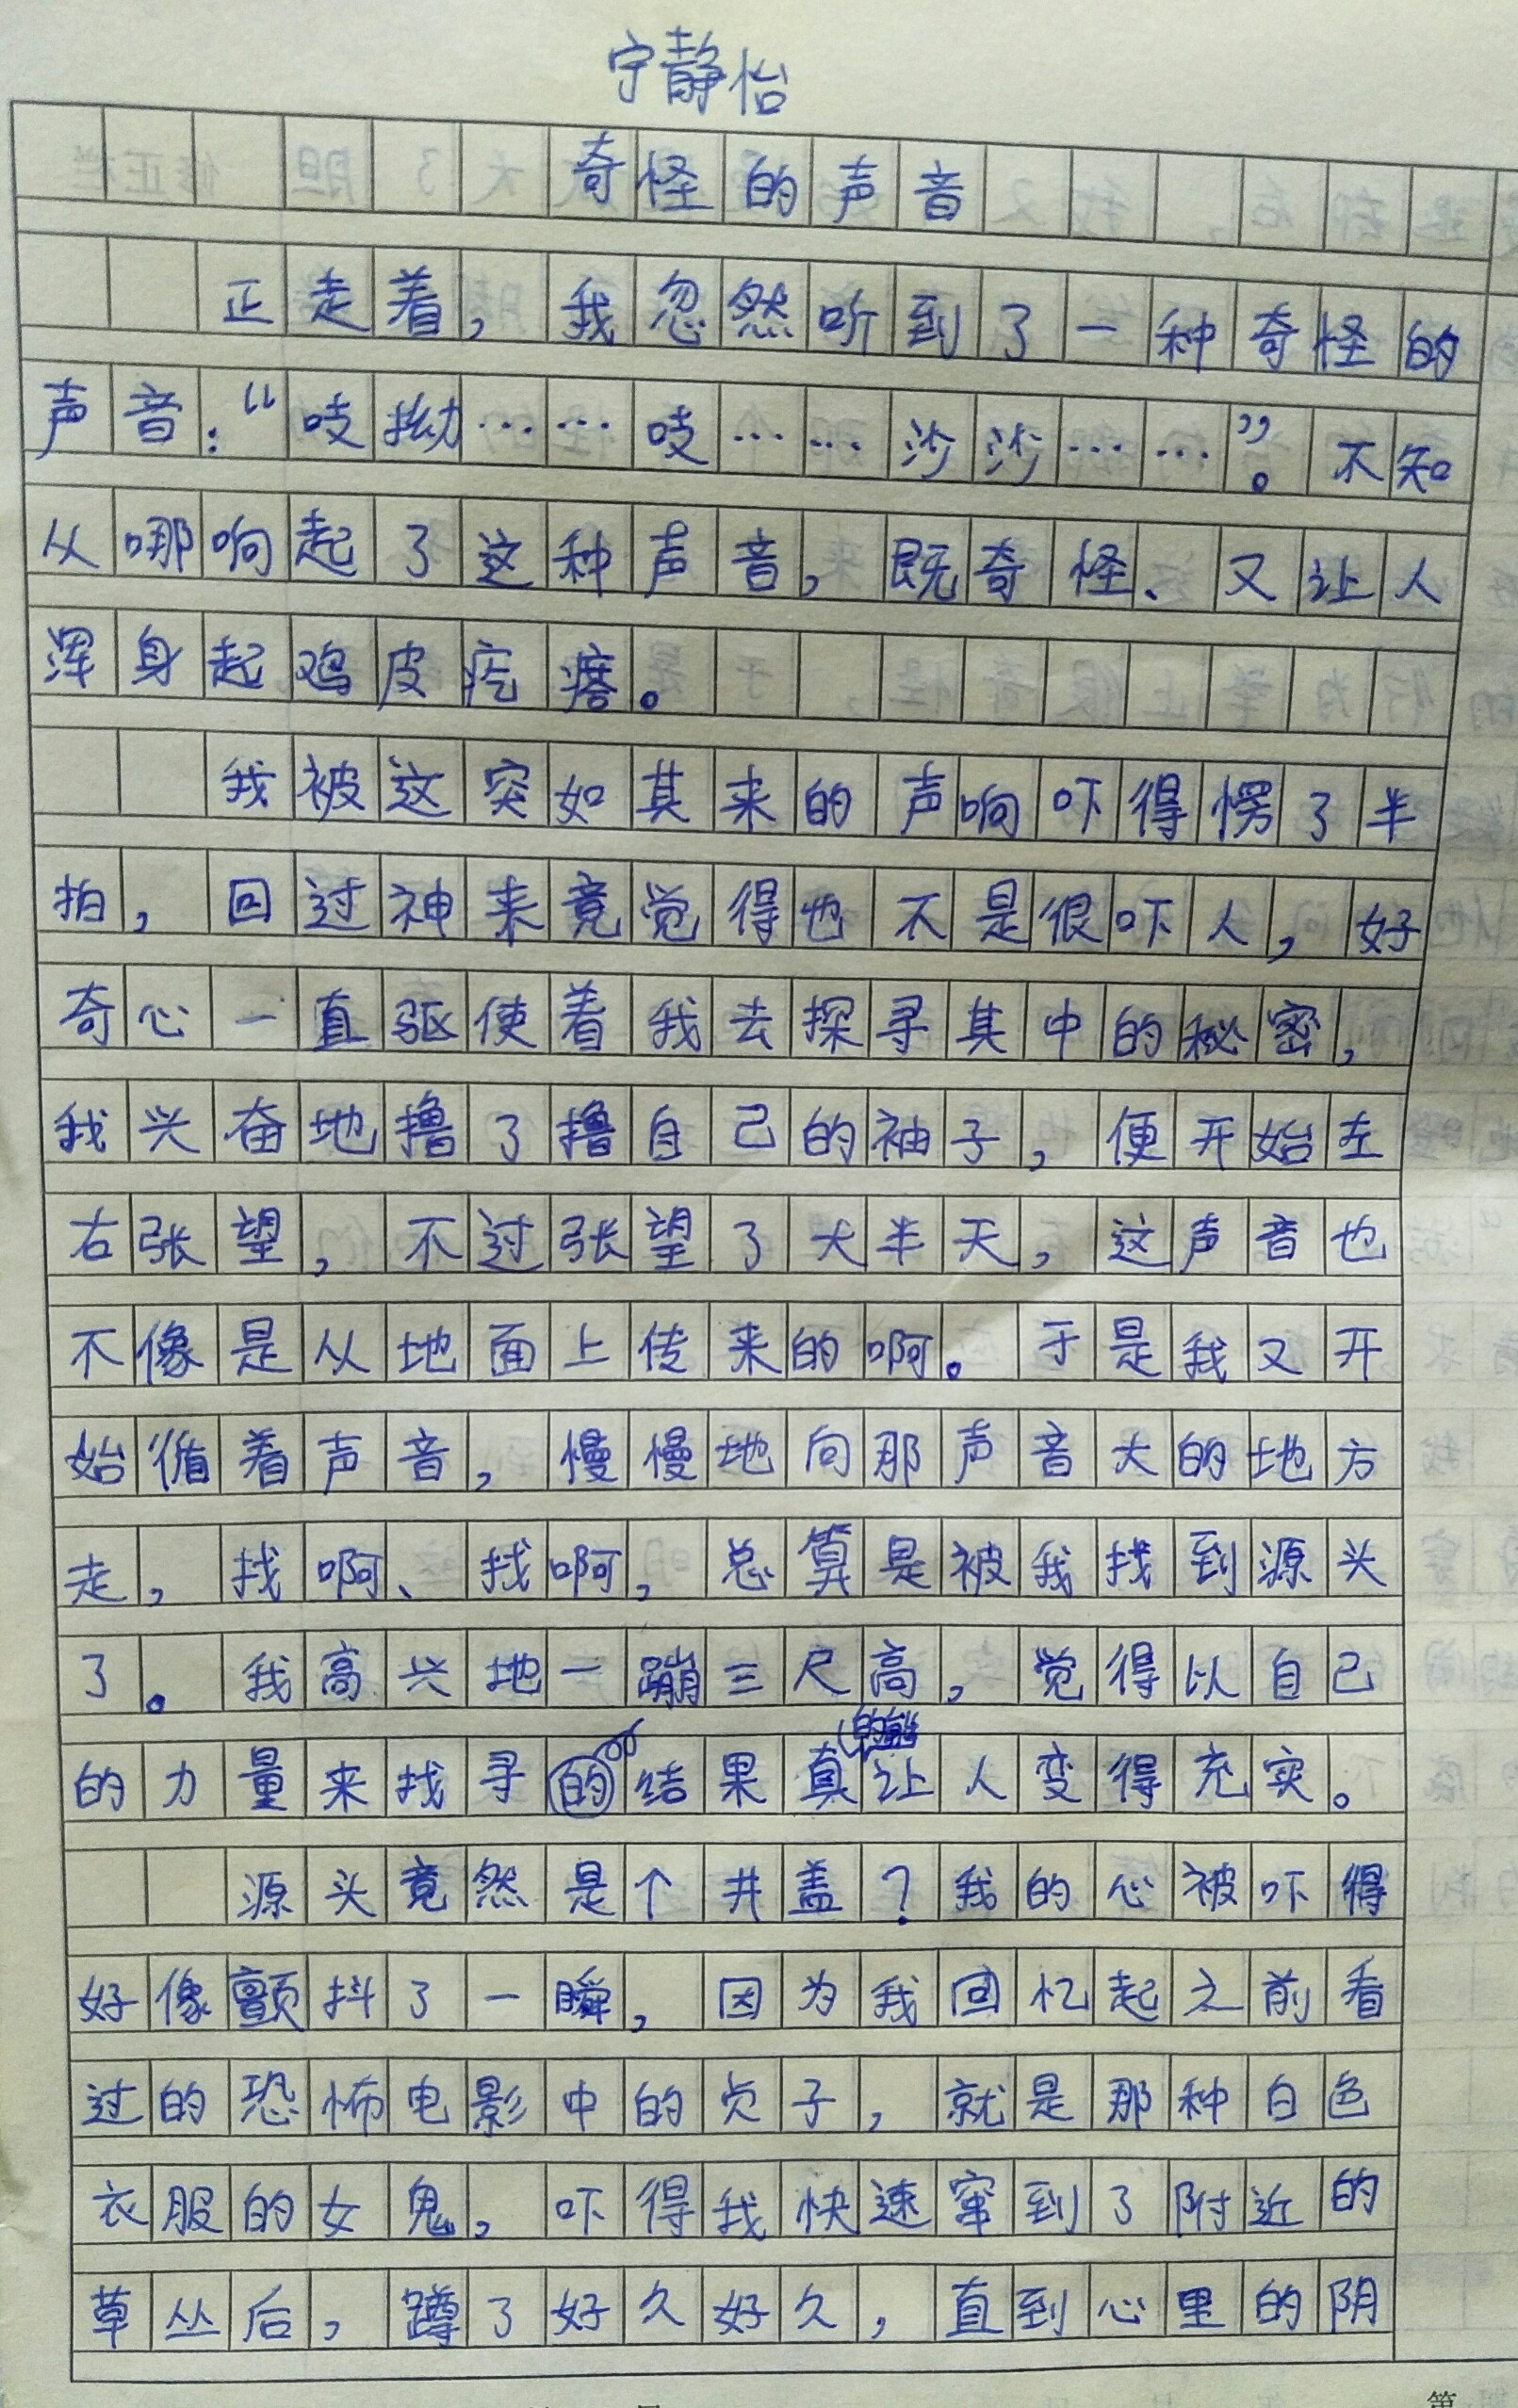 宁静怡
奇怪的声音
正走着，我忽然听到了一种奇怪的
声音：“吱拗……吱……沙沙……”。不知
从哪响起了这种声音，既奇怪、又让人
浑身起鸡皮疙瘩。
我被这突如其来的声响吓得愣了半
拍，回过神来竟觉得也不是很吓人，好
奇心一直驱使着我去探寻其中的秘密，
我兴奋地撸了撸自己的袖子，便开始左
右张望，不过张望了大半天，这声音也
不像是从地面上传来的啊。于是我又开
始循着声音，慢慢地向那声音大的地方
走，找啊、找啊，总算是被我找到源头
了。我高兴地一蹦三尺高，觉得以自己
的力量来找寻结果真的能让人变得充实。
源头竟然是个井盖？我的心被吓得
好像颤抖了一瞬，因为我回忆起之前看
过的恐怖电影中的贞子，就是那种白色
衣服的女鬼，吓得我快速窜到了附近的
草丛后，蹲了好久好久，直到心里的阴
第